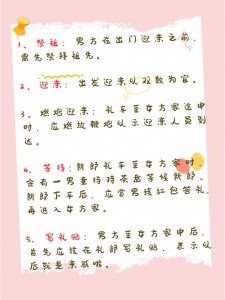 1、祭祖：男方在出门迎亲之前，
需先祭拜祖先。
2、迎亲：出发迎亲以双数为宜。
3、燃炮迎亲：礼车至女方家途中
时，应燃放鞭炮以示迎亲人员到
达。
4、等待：新郎礼车至女方家时，
会有一男童待持茶盘等候新郎，
新郎下车后，应赏男孩红包答礼，
再进入女方家。
5、写礼贴：男方至女方家中后，
首先应该在礼部写礼贴，表示以
后就是亲戚啦。